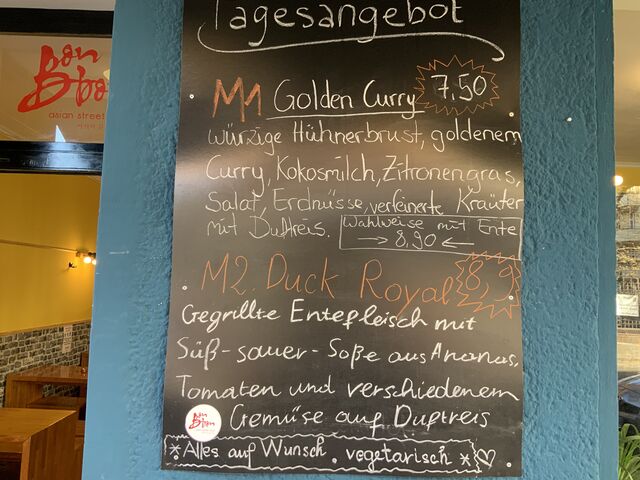 Tagesangebot
Bon Bon
asian street
M1 Golden Curry 7,50
würzige Hühnerbrust, goldenem
Curry, Kokosmilch, Zitronengras,
Salat, Erdnüsse, verfeinerte Kräuter
mit Duftreis. Wahlweise mit Ente
→ 8,90 ←
M2. Duck Royal 8,9
Gegrillte Entefleisch mit
Süß-sauer-Soße aus Ananas,
Tomaten und verschiedenem
Bon Bon Gemüse auf Duftreis
*Alles auf Wunsch, vegetarisch * ♡